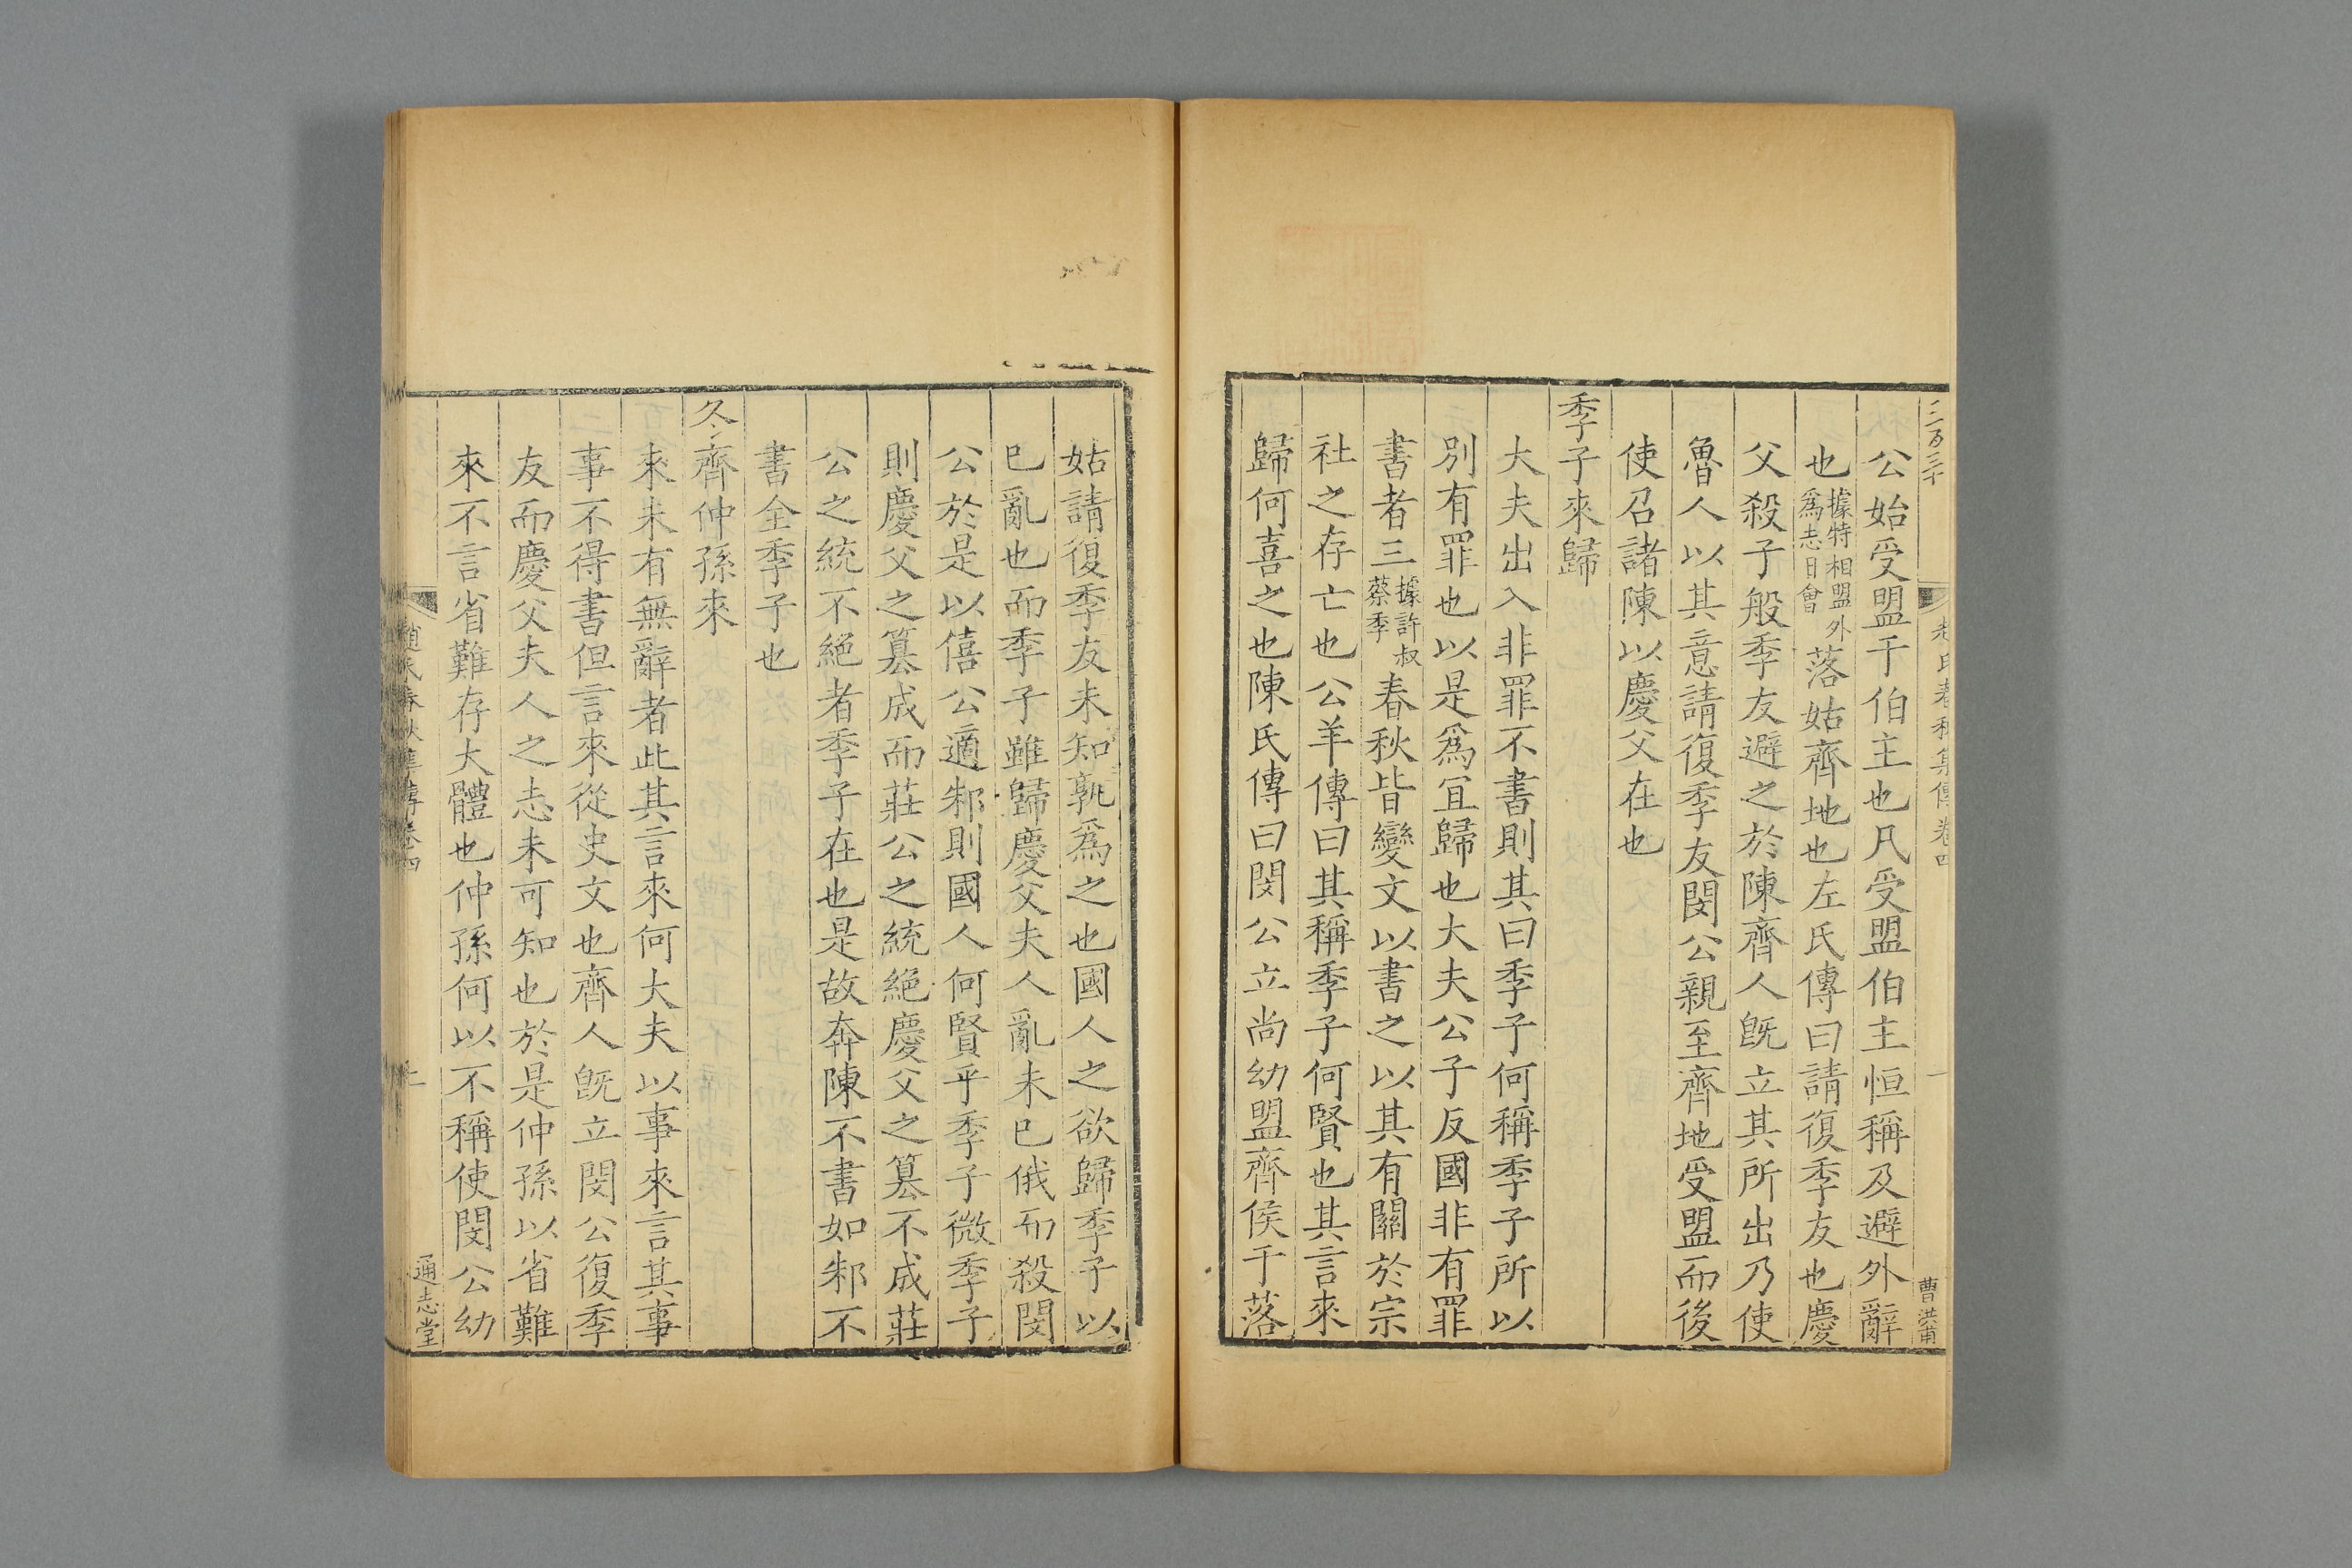 三百三十
趙氏春秋集傳卷四
一
曹洪甫
公始受盟于伯主也凡受盟伯主恒稱及避外辭
也據特相盟外爲志日會落姑齊地也左氏傳曰請復季友也慶
父殺子般季友避之於陳齊人旣立其所出乃使
魯人以其意請復季友閔公親至齊地受盟而後
使召諸陳以慶父在也
季子來歸
大夫出入非罪不書則其曰季子何稱季子所以
別有罪也以是爲冝歸也大夫公子反國非有罪
書者三據許叔蔡季春秋皆變文以書之以其有關於宗
社之存亡也公羊傳曰其稱季子何賢也其言來
歸何喜之也陳氏傳曰閔公立尚幼盟齊侯于落
姑請復季友未知孰爲之也國人之欲歸季子以
巳亂也而季子雖歸慶父夫人亂未巳俄而殺閔
公於是以僖公適邾則國人何賢乎季子微季子
則慶父之篡成而莊公之統絕慶父之篡不成莊
公之統不絕者季子在也是故奔陳不書如邾不
書全季子也
冬齊仲孫來
來未有無辭者此其言來何大夫以事來言其事
事不得書但言來從史文也齊人旣立閔公復季
友而慶父夫人之志未可知也於是仲孫以省難
來不言省難存大體也仲孫何以不稱使閔公幼
趙氏春秋集傳卷四
通志堂